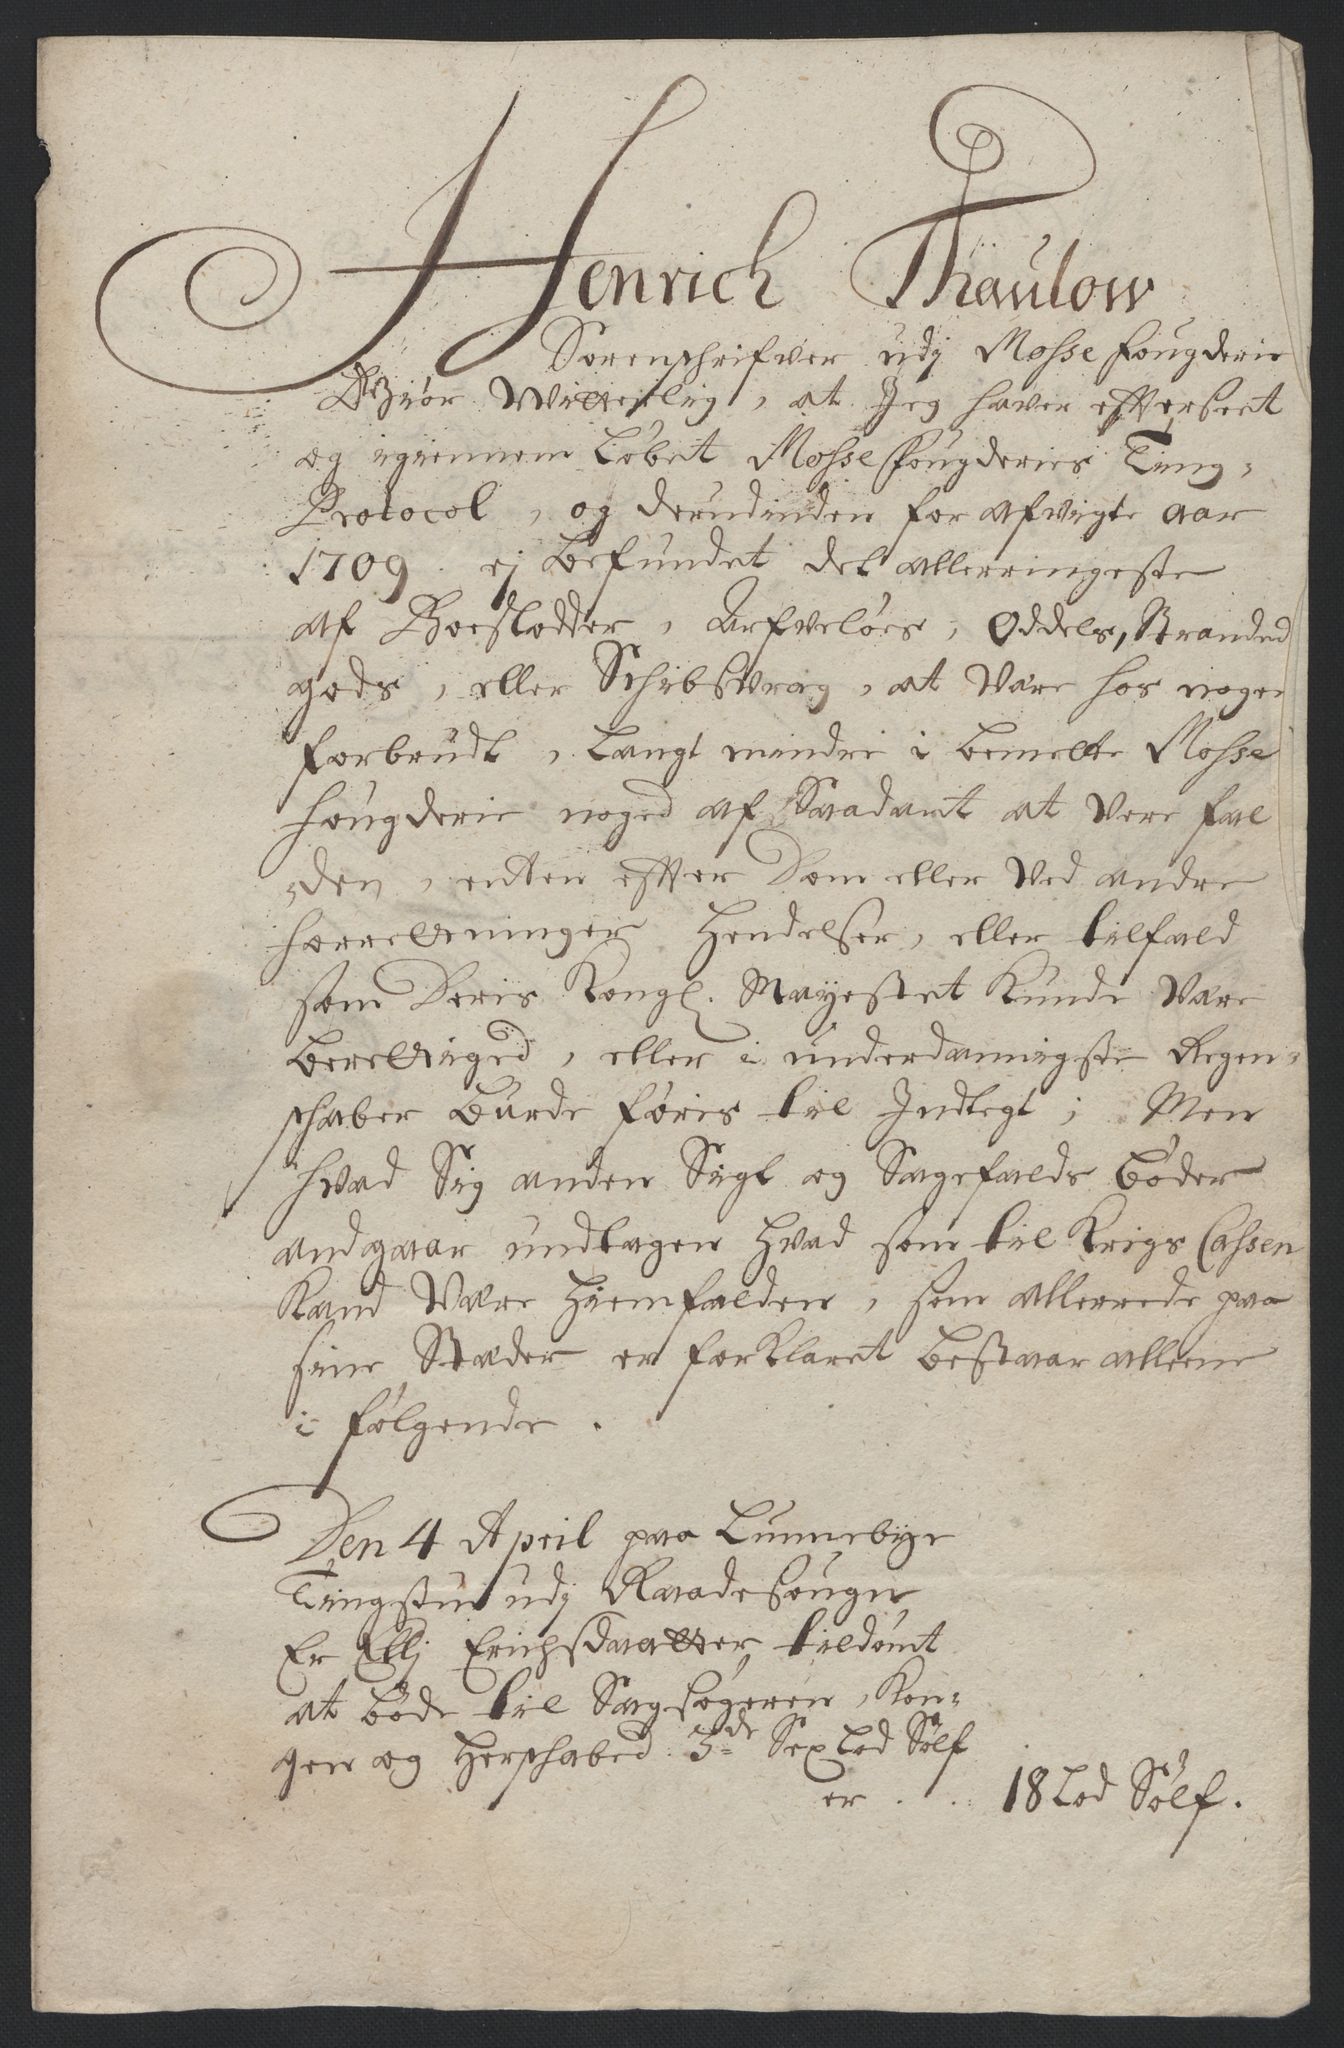 Henrich Thaulow
Sorenschrifver udj Mosse fougderie
Giør Witterlig, at Jeg haver efterseet
og igiennem Løbet Mosse fougderies Ting-
Protocol, og derudinden for afvigte aar
1709. ej befundet det allerringeste
af Boeslodder, Arfveløes, Oddels, Stranded
gods, eller Schibsvrag, at være hos nogen
forbrudt, langt mindre i bemelte Mosse
fougderie noged af Saadant at vere fal
den, enten efter Dom eller ved andre
forretninger Hendelser, eller tilfald
som Deris Kongl. Mayestet Kunde være
berettiged, eller i underdannigste Regen-
schaber burde føris til Indtegt; Men
hvad Sig anden Sigt og Sagefalds bøder
andgaar undtagen hvad som til Krigs Cassen
Kand være hiemfalden, som allerrede paa
sine Stæder er forklaret bestaar alleene
i følgende.
Den 4 April paa Lunnebye
Tingstue udj Raadesougn
Er Ellj Erichsdaatter tildømt
at bøde til Sagsøgeren, Kon-
gen og Herschabed 3de Sex Lod Sølf
er . . 18 Lod Sølf.